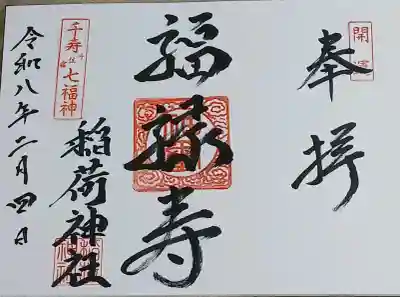 奉拝
開運
福禄寿
稲荷神社
千寿七福神
千住
令和八年二月四日